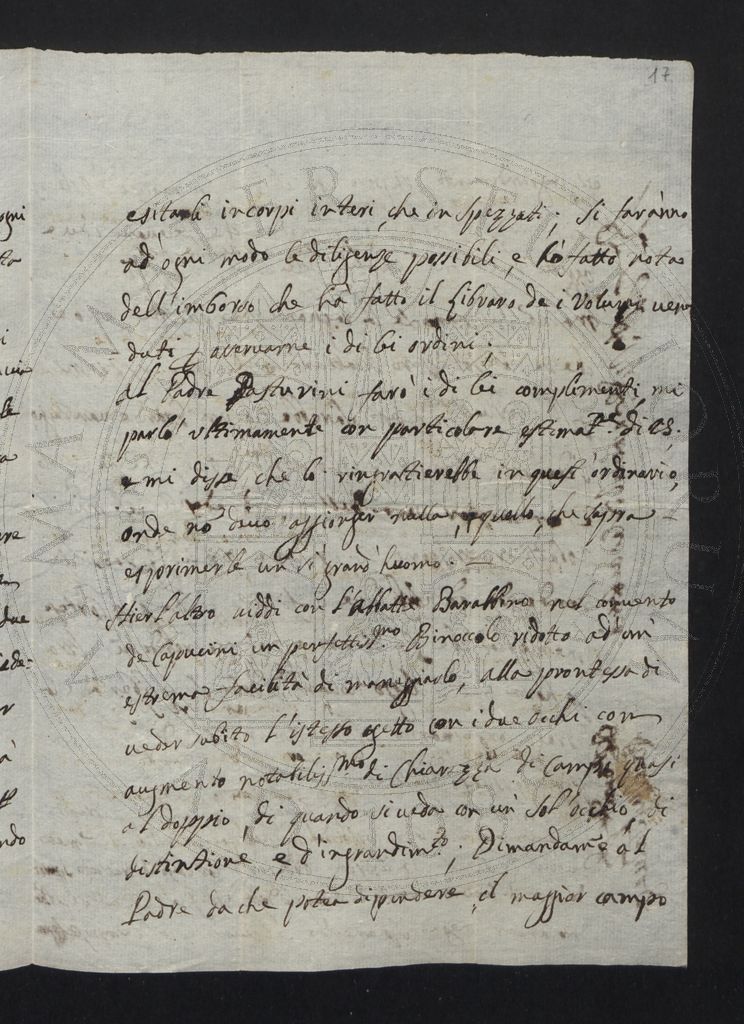 17
esitarli in corpi interi, che in spezzati; si faranno
ad' ogni modo le diligenze possibili, e hò fatto nota
dell'imborso che hà fatto il libraro de i Volumi ven
duti p. avervarne i di lei ordini;
al Padre Pasturini farò i di lei complimenti, mi
parlò ultimamente con particolare estimat.ne di
e mi disse, che lo ringratierebbe in quest' ordinario,
onde nõ devo aggionger nulla, a quello, che saprà
esprimerle un sì grand' huomo. —
Hier l'altro viddi con l'Abbate Barabbino nel convento
de Capuccini un perfettiss.mo Binoccolo ridotto ad' un'
estrema facilità di maneggiarlo, alla prontezza di
veder subito l'istesso ogetto con i due occhi con
augmento notabiliss.mo di Chiarezza di Campo quasi
al doppio, di quando si veda con un' sol' occhio, di
distintione, e d'ingrandim.to; Dimandam̃e al
Padre da che potea dipendere, il maggior campo
ogni
le
due
ndo